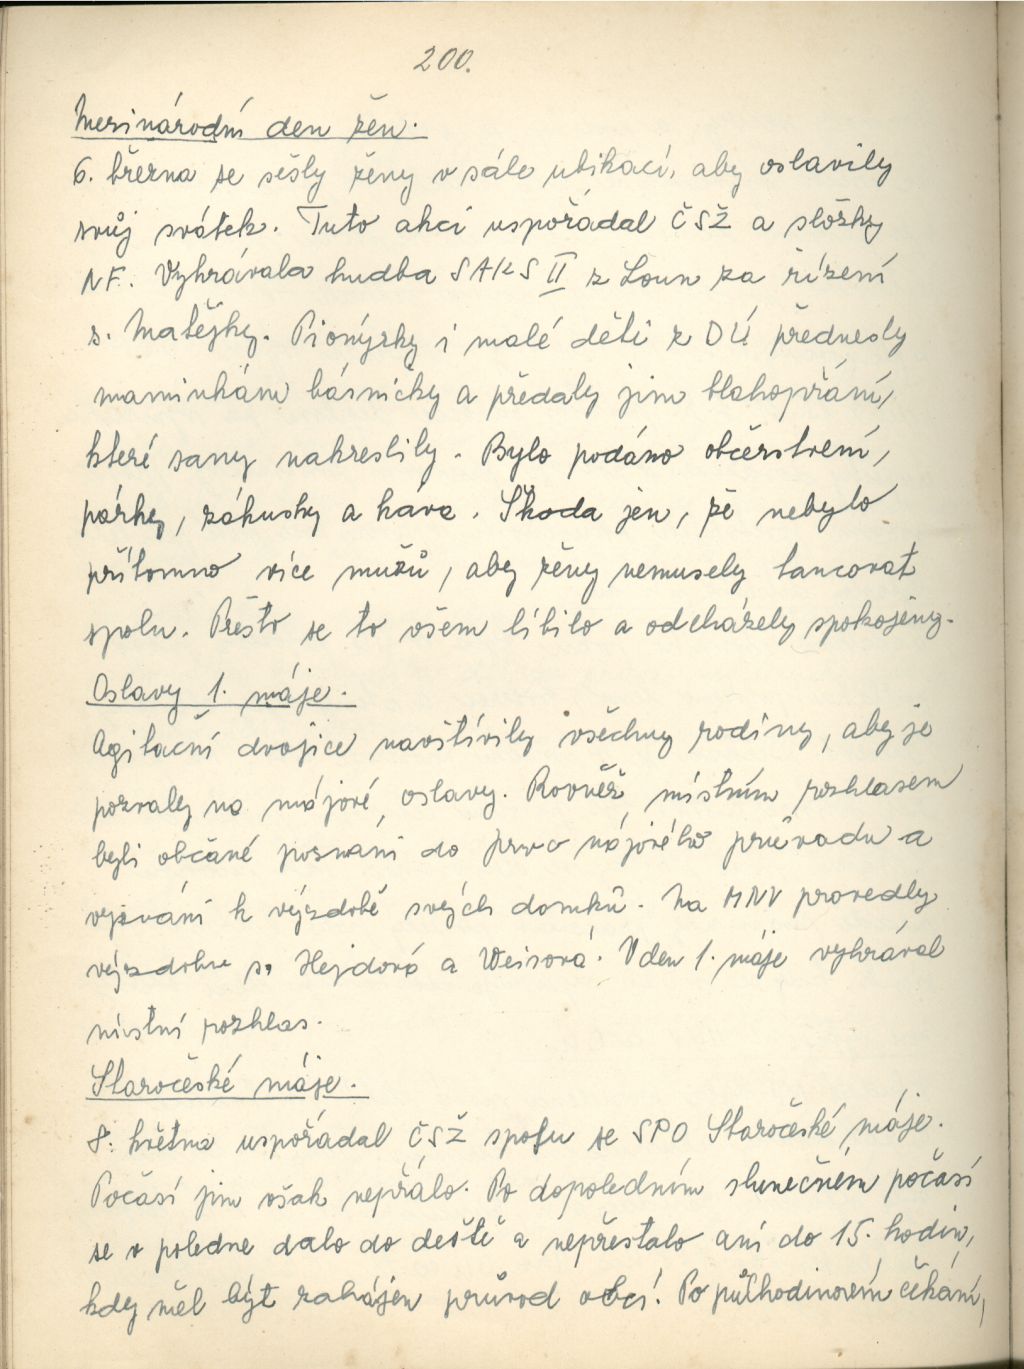 200.
Mezinárodní den žen.
6. března se sešly ženy v sále ubikací, aby oslavily
svůj svátek. Tuto akci uspořádal ČSŽ a složky
NF. Vyhrávala hudba SAKS II z Loun za řízení
s. Matějky. Pionýrky i malé děti z DÚ přednesly
maminkám básničky a předaly jim blahopřání,
které samy nakreslily. Bylo podáno občerstvení,
párky, zákusky a káva. Škoda jen, že nebylo
přítomno více mužů, aby ženy nemusely tancovat
spolu. Přesto se to všem líbilo a odcházely spokojeny.
Oslavy 1. máje.
Agitační dvojice navštívily všechny rodiny, aby je
pozvaly na májové oslavy. Rovněž místním rozhlasem
byli občané pozváni do prvo májového průvodu a
vyzváni k výzdobě svých domků. Na MNV provedly
výzdobu s. Hejdová a Weisová. V den 1. máje vyhrával
místní rozhlas.
Staročeské máje.
8. května uspořádal ČSŽ spolu se SPO Staročeské máje.
Počasí jim však nepřálo. Po dopoledním slunečném počasí
se v poledne dalo do deště a nepřestalo ani do 15. hodin,
kdy měl být zahájen průvod obcí. Po půlhodinovém čekání,